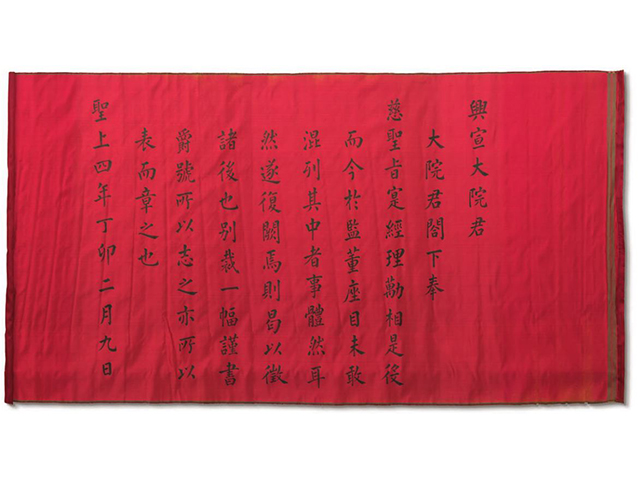 興宣大院君
大院君閤下奉
慈聖旨寔經理勱相是役
而今於監董座目未敢
混列其中者事體然耳
然遂復闕焉則曷以徵
諸後也別裁一幅謹書
爵號所以志之亦所以
表而章之也
聖上四年丁卯二月九日